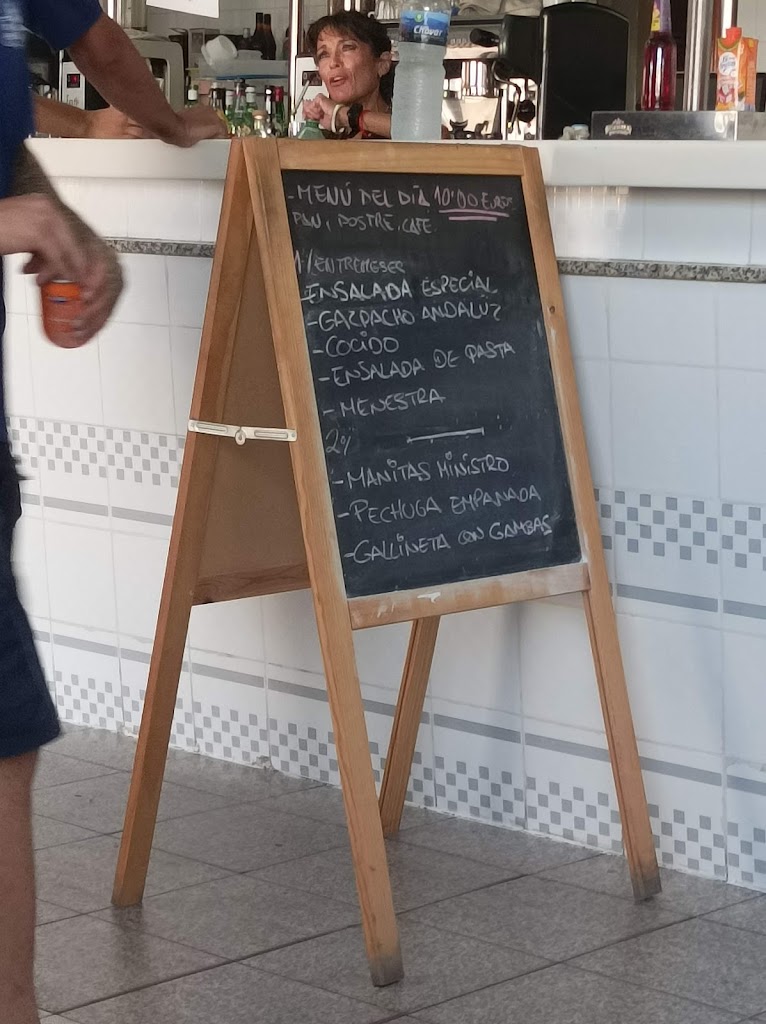 -MENÚ DEL DÍA 10'00 EUROS
PAN, POSTRE, CAFE
1º/ ENTREMESES
-ENSALADA ESPECIAL
-GAZPACHO ANDALUZ
-COCIDO
-ENSALADA DE PASTA
-MENESTRA
2º/
-MANITAS MINISTRO
-PECHUGA EMPANADA
-GALLINETA CON GAMBAS